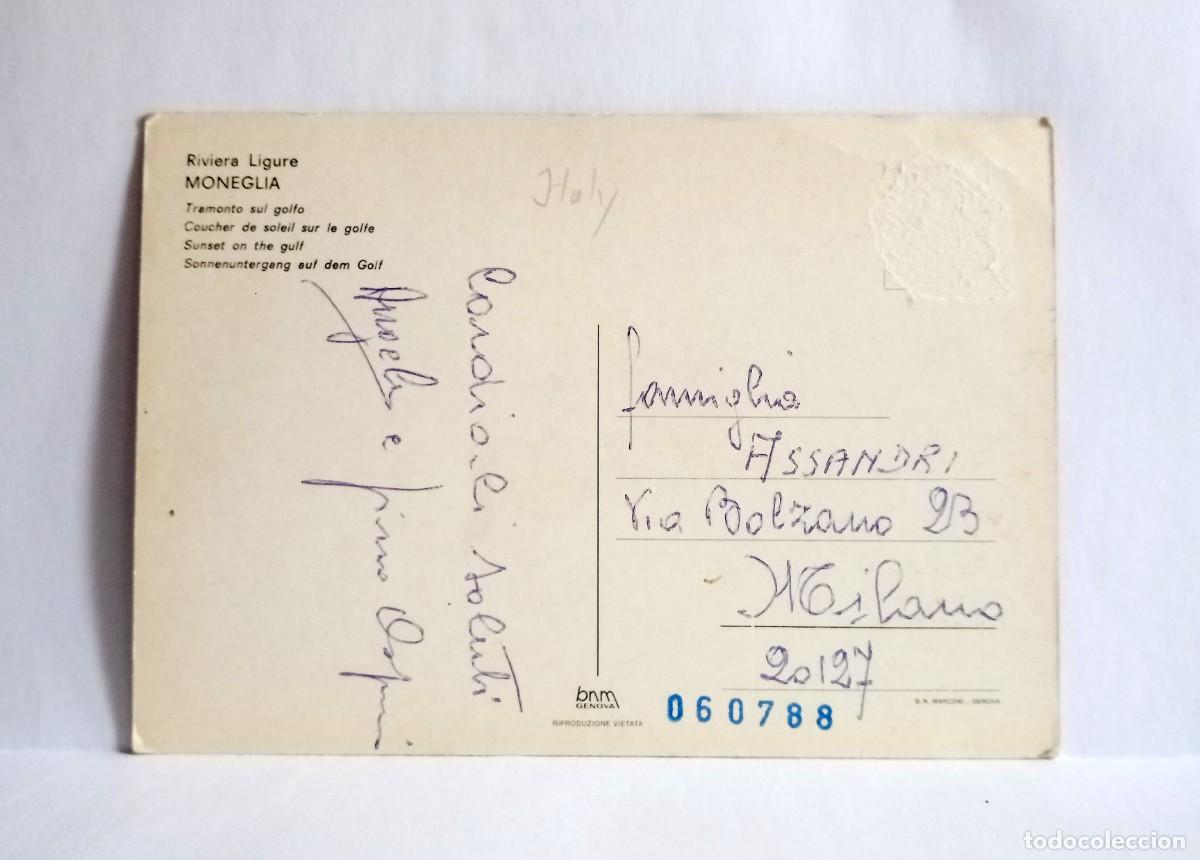 Riviera Ligure
MONEGLIA
Tramonto sul golfo
Coucher de soleil sur le golfe
Sunset on the gulf
Sonnenuntergang auf dem Golf
Italy
Cordiali saluti
e
famiglia
ASSANDRI
Via Bolzano 23
Milano
20127
bnm
GENOVA
RIPRODUZIONE VIETATA
060788
B.N. MARCONI - GENOVA
todocoleccion